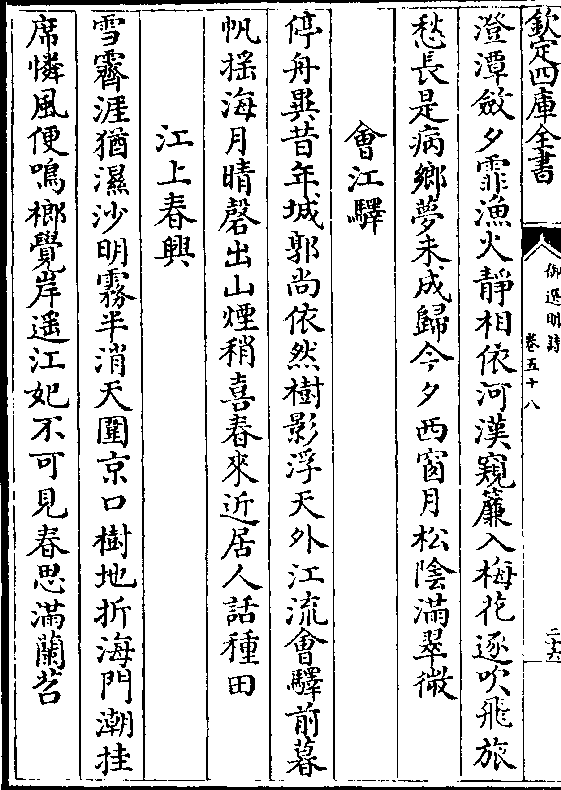 欽定四庫全書
御選明詩
卷五十八
二十六
澄潭斂夕霏漁火静相依河漢窺簾入梅花逐吹飛旅
愁長是病鄉夢未成歸今夕西窗月松陰滿翠微
會江驛
停舟異昔年城郭尚依然樹影浮天外江流會驛前暮
帆揺海月晴磬出山煙稍喜春來近居人話種田
江上春興
雪霽涯猶濕沙明霧半消天圍京口樹地折海門潮挂
席憐風便鳴榔覺岸遥江妃不可見春思滿蘭苕